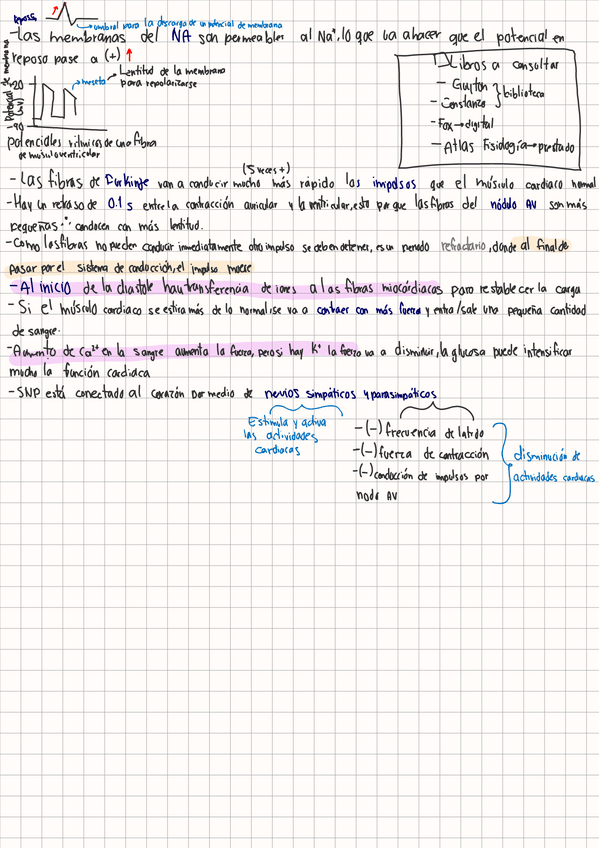 reposo
→umbral para la descarga de un potencial de membrana
-Las membranas del NA son permeables al Na⁺, lo que va a hacer que el potencial en
reposo pase a (+) ↑
Potencial de membrana (mV)
+20
-90
→meseta → Lentitud de la membrana
para repolarizarse
Potenciales rítmicos de una fibra
de músculo ventricular
Libros a consultar
- Guyton
- Constanzo } biblioteca
- Fox → digital
- Atlas Fisiología → prestado
(5 veces +)
- Las fibras de Purkinje van a conducir mucho más rápido los impulsos que el músculo cardiaco normal
-Hay un retraso de 0.1 s entre la contracción auricular y la ventricular, esto porque las fibras del nódulo AV son más
pequeñas ∴ conducen con más lentitud.
-Como las fibras no pueden conducir inmediatamente otro impulso se deben detener, es un periodo refractario, donde al final de
pasar por el sistema de conducción, el impulso muere
-Al inicio de la diastole hay transferencia de iones a las fibras miocárdiacas para restablecer la carga
- Si el músculo cardiaco se estira más de lo normal se va a contraer con más fuerza y entra/sale una pequeña cantidad
de sangre.
-Aumento de Ca²⁺ en la sangre aumenta la fuerza, pero si hay K⁺ la fuerza va a disminuir, la glucosa puede intensificar
mucho la función cardiaca
-SNP está conectado al corazón por medio de nervios simpáticos y parasimpáticos
Estimula y activa
las actividades
cardiacas
-(-) frecuencia de latido
-(-) fuerza de contracción
-(-) conducción de impulsos por
nodo AV
disminución de
actividades cardiacas